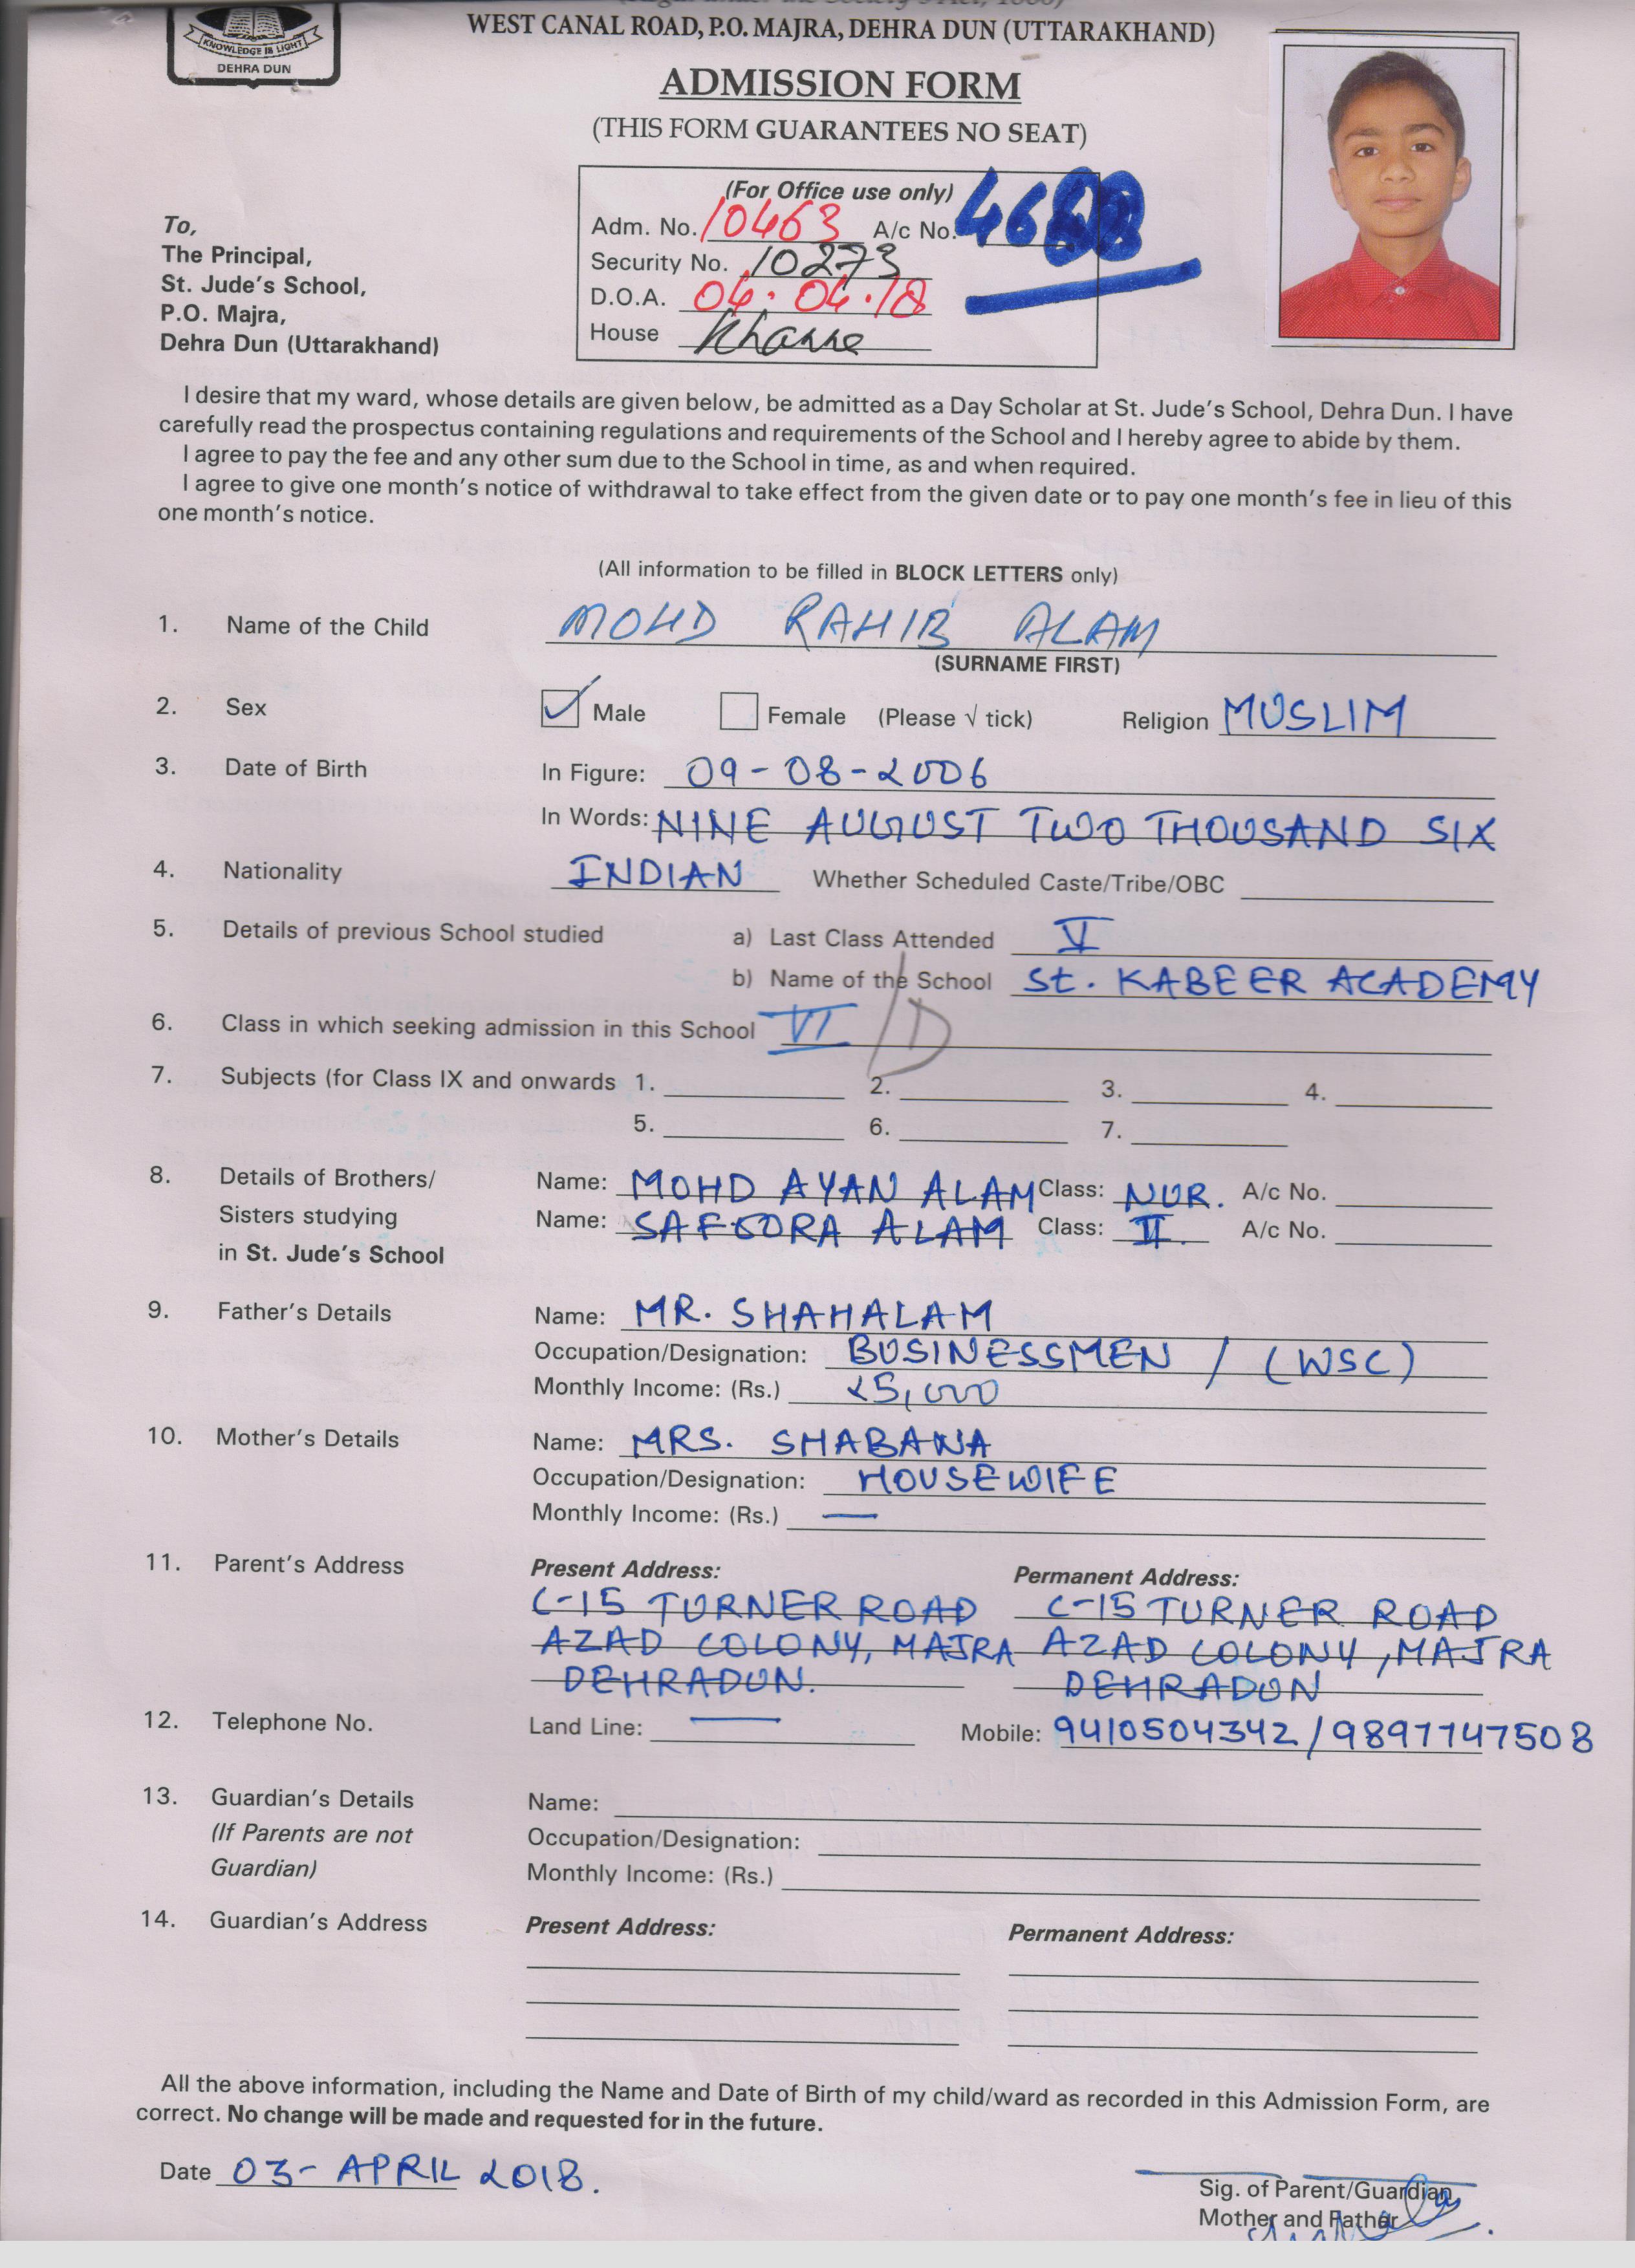 WEST CANAL ROAD, P.O. MAJRA, DEHRA DUN (UTTARAKHAND)
KNOWLEDGE IS LIGHT
DEHRA DUN
ADMISSION FORM
(THIS FORM GUARANTEES NO SEAT)
(For Office use only)
Adm. No. 10463 A/c No. 4688
Security No. 10273
D.O.A. 04.04.18
House Khanna
To,
The Principal,
St. Jude's School,
P.O. Majra,
Dehra Dun (Uttarakhand)
I desire that my ward, whose details are given below, be admitted as a Day Scholar at St. Jude's School, Dehra Dun. I have
carefully read the prospectus containing regulations and requirements of the School and I hereby agree to abide by them.
I agree to pay the fee and any other sum due to the School in time, as and when required.
I agree to give one month's notice of withdrawal to take effect from the given date or to pay one month's fee in lieu of this
one month's notice.
(All information to be filled in BLOCK LETTERS only)
1. Name of the Child MOHD RAHIB ALAM
(SURNAME FIRST)
2. Sex Male Female (Please √ tick) Religion MUSLIM
3. Date of Birth In Figure: 09-08-2006
In Words: NINE AUGUST TWO THOUSAND SIX
4. Nationality INDIAN Whether Scheduled Caste/Tribe/OBC
5. Details of previous School studied a) Last Class Attended V
b) Name of the School St. KABEER ACADEMY
6. Class in which seeking admission in this School VI /D
7. Subjects (for Class IX and onwards 1. 2. 3. 4.
5. 6. 7.
8. Details of Brothers/ Name: MOHD AYAN ALAM Class: NUR. A/c No.
Sisters studying Name: SAFOORA ALAM Class: II. A/c No.
in St. Jude's School
9. Father's Details Name: MR. SHAHALAM
Occupation/Designation: BUSINESSMEN / (WSC)
Monthly Income: (Rs.) 25,000
10. Mother's Details Name: MRS. SHABANA
Occupation/Designation: HOUSEWIFE
Monthly Income: (Rs.) —
11. Parent's Address Present Address: Permanent Address:
C-15 TURNER ROAD C-15 TURNER ROAD
AZAD COLONY, MAJRA AZAD COLONY, MAJRA
DEHRADUN. DEHRADUN
12. Telephone No. Land Line: — Mobile: 9410504342/9897747508
13. Guardian's Details Name:
(If Parents are not Occupation/Designation:
Guardian) Monthly Income: (Rs.)
14. Guardian's Address Present Address: Permanent Address:
All the above information, including the Name and Date of Birth of my child/ward as recorded in this Admission Form, are
correct. No change will be made and requested for in the future.
Date 03- APRIL 2018.
Sig. of Parent/Guardian
Mother and Father